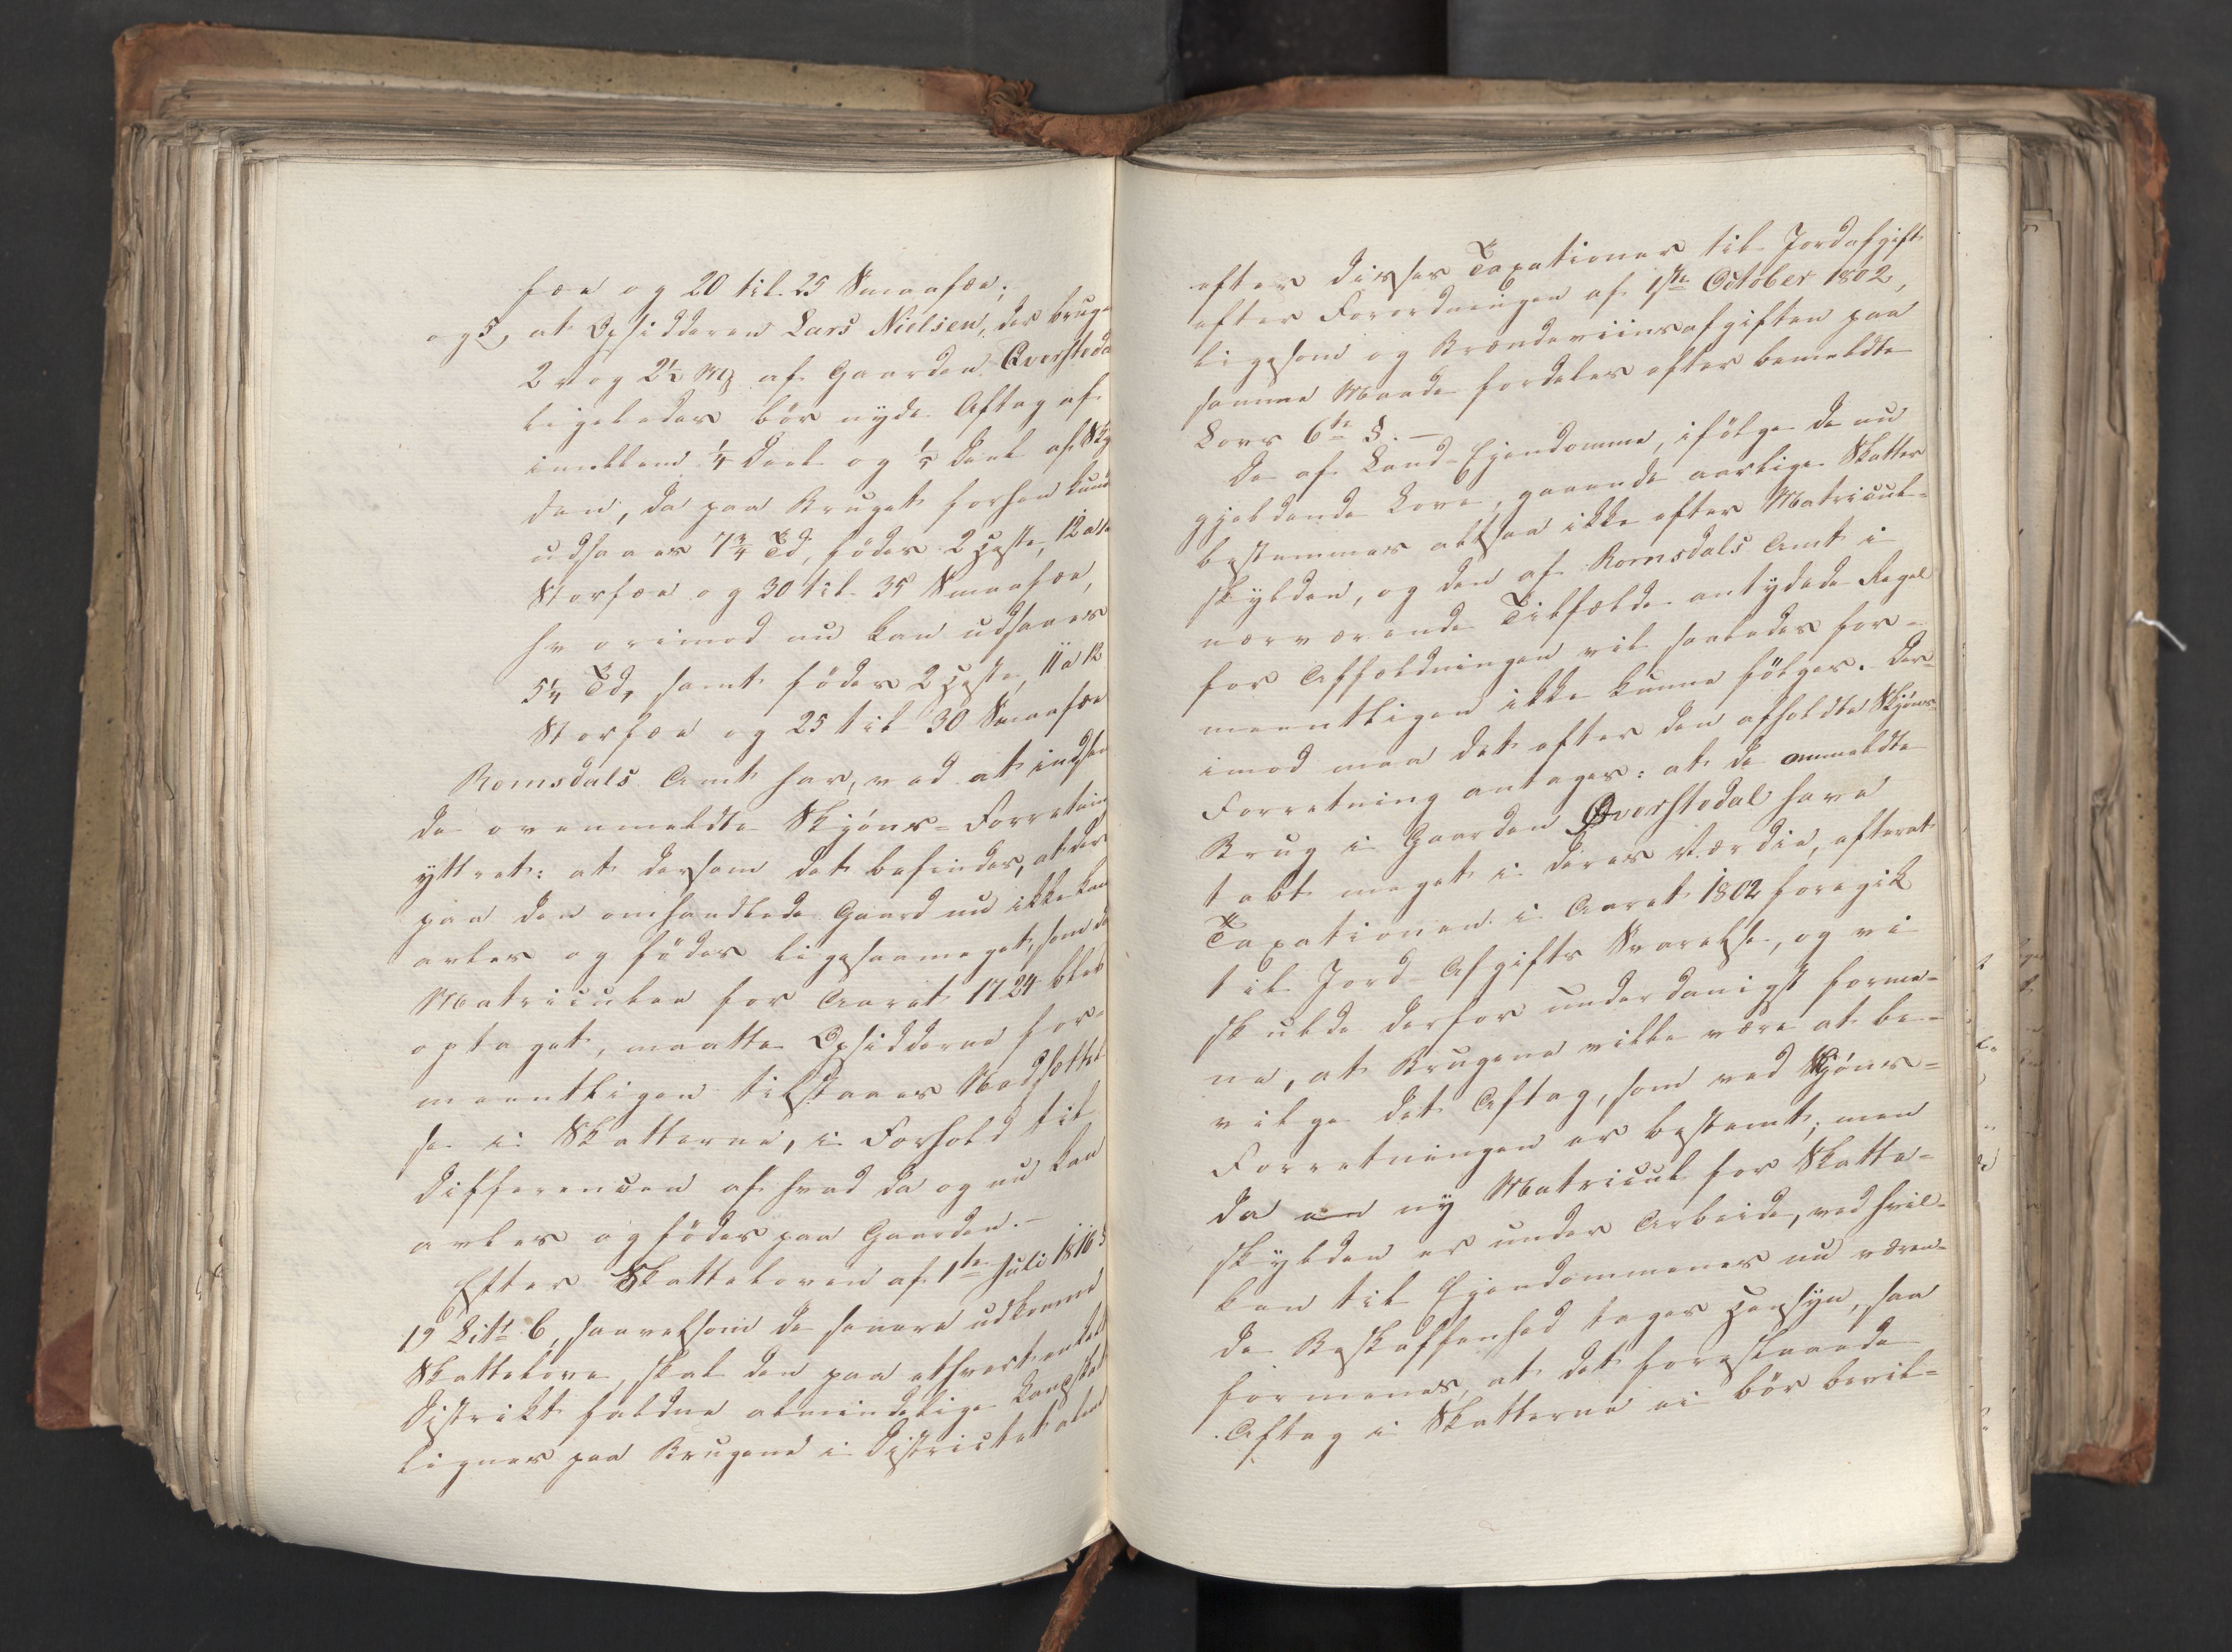 fæe og 20 til 25 Smaafæe;
og 5, at Opsidderen Lars Nielsen, der bruge
2 og 2½ Mg af Gaarden Øversteda
ligeledes bör nyde Aftag af
imellem ¼ Deel og ⅕ Deel af Sky
den, da paa Bruget forhen kund
udsaaes 7¾ Td, födes 2 Heste, 12 a
Storfæe og 30 til 35 Smaafæe,
hvorimod nu kan udsaaes
5¼ Td, samt födes 2 Heste, 11 a 12
Storfæe og 25 til 30 Smaafæe
Romsdals Amt har, ved at indsen
de ovenmeldte Skjöns-Forretning
yttret: at dersom det befindes, at der
paa den omhandlede Gaard nu ikke kan
avles og födes ligesaameget, som da
Matriculen for Aaret 1724 blev
optaget, maatte Opsidderne for-
meentligen tilstaaes Nedsættel
se i Skatterne, i Forhold til
Differencen af hvad da og nu kan
avles og födes paa Gaarden. —
Efter Skatteloven af 1te Juli 1816 §
19 Litt. C, saavelsom de senere udkomne
Skattelove, skal den paa ethvert enkelt
District faldne almindelige Landskat
lignes paa Brugene i Districtet
efter disses Taxationer til Jordafgift
efter Forordningen af 1ste October 1802,
ligesom og Brændeviinsafgiften paa
samme Maade fordeles efter bemeldte
Lovs 6te §. —
De af Land-Ejendomme, ifölge de nu
gjeldende Love, gaaende aarlige Skatter
bestemmes altsaa ikke efter Matricul-
skylden, og den af Romsdals Amt i
nærværende Tilfælde antydede Regel
for Affældningen vil saaledes for-
meentligen ikke kunne fölges. Der-
imod maa det efter den afholdte Skjöns-
Forretning antages: at de ommeldte
Brug i Gaarden Øverstedal have
tabt meget i deres Værdie, efterat
Taxationen i Aaret 1802 foregik
til Jord-Afgifts Svarelse, og vi
skulde derfor underdanigst forme-
ne, at Brugene ville være at be-
vilge det Aftag, som ved Skjöns-
Forretningen er bestemt; men
da en ny Matricul for Skatte-
skylden er under Arbeide, ved hvil-
ken til Ejendommenes nu væren-
de Beskaffenhed tages Hensyn, saa
formenes, at det forestaaende
Aftag i Skatterne ei bör bevil-